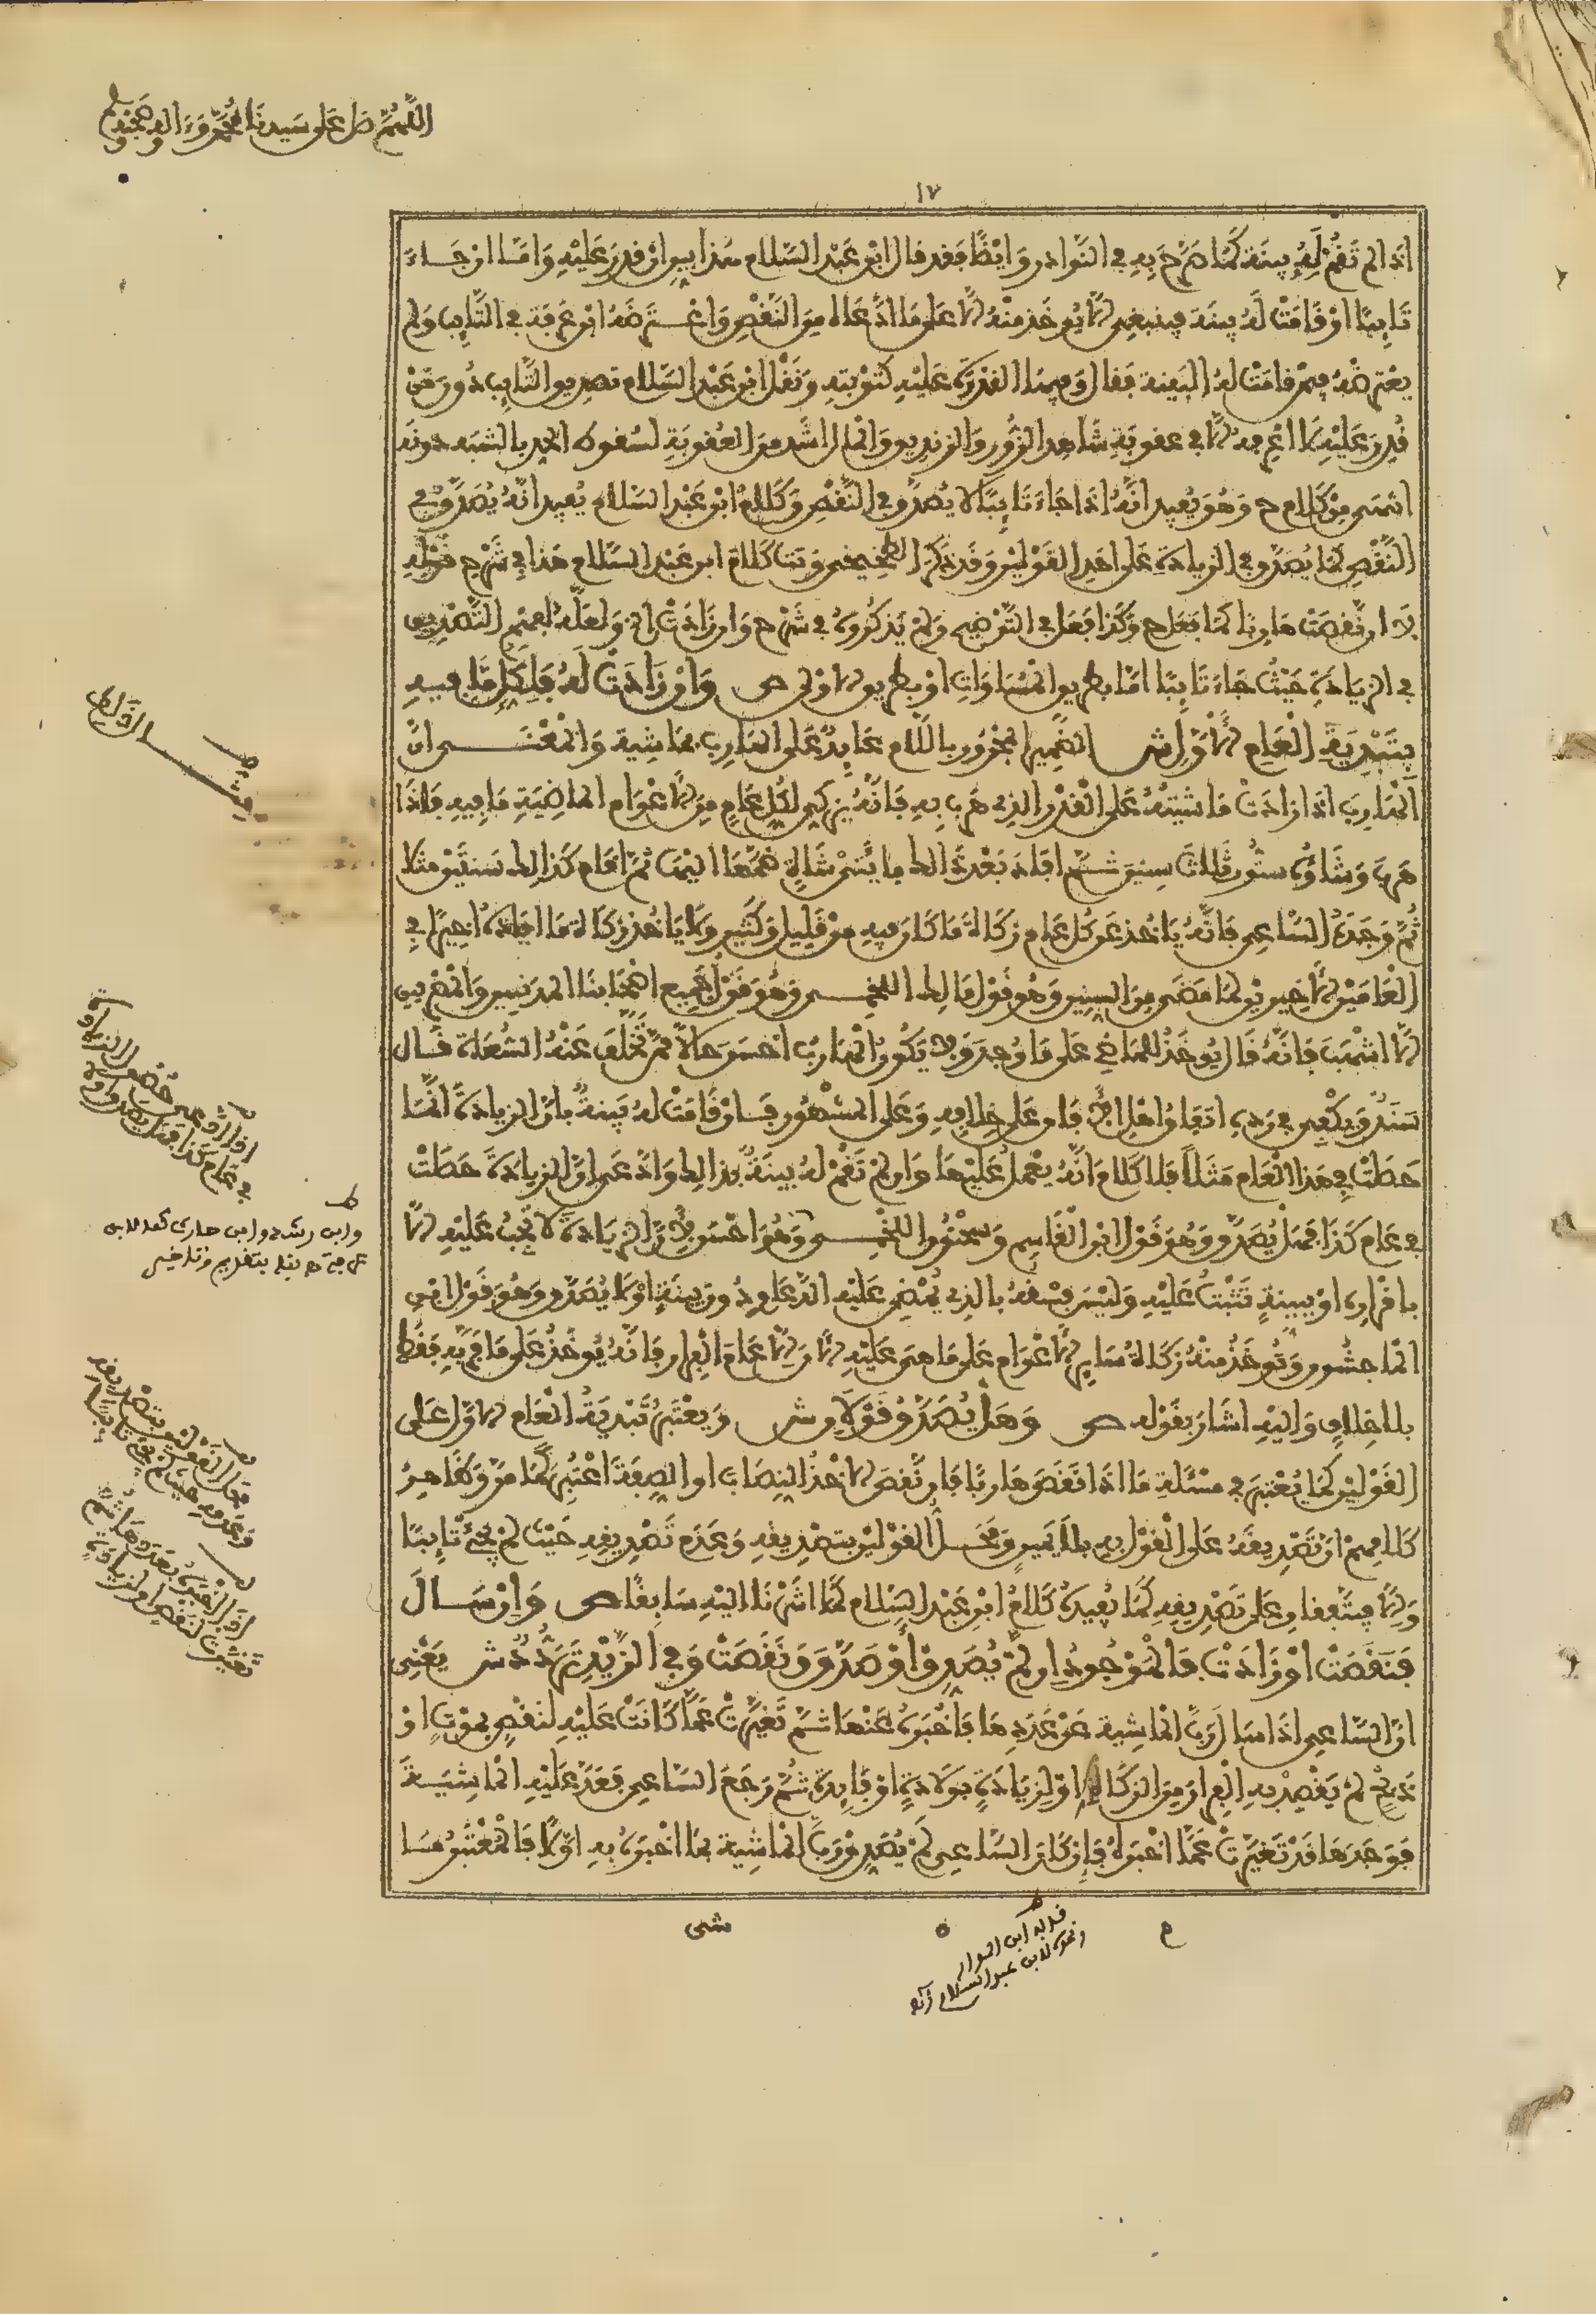 اللهم صل على سيدنا محمد وءاله وصحبه
١٧
اذا لم تقم له بينة كما صرح به في النوادر وايضا فقد قال ابن عبد السلام هذا فيمن قدر عليه واما ان جاء
تايبا او قامت له بينة فينبغي الا يوخذ منه الا على ما ادعاه من النقص واعترضه ابن عرفة في التايب ولم
يعترضه فيمن قامت له البينة فقال وفيها القدرة عليه كتوبته ونقل ابن عبد السلام تصديق التايب دون من
قدر عليه لا اعرفه الا في عقوبة شاهد الزور والزنديق والمال اشد من العقوبة لسقوط الحد بالشبه دونه
انتهى من كلام ح وهو يفيد انه اذا جاء تايبا لا يصدق في النقص وكلام ابن عبد السلام يفيد انه يصدق في
النقص كما يصدق في الزيادة على احد القولين وقد ذكر الطخيخي وتت كلام ابن عبد السلام هذا في شرح قوله
بلا ان نقصت هاربا كما فعل ح وكذا فعل في التوضيح ولم يذكروه في شرح وان زادت له ولعله لفهم التصديق
في الزيادة حيث جاء تايبا اما بطريق المساوات او بطريق الاولى ص وان زادت له فلكل ما فيه
بتبدية العام الاول ش الضمير المجرور باللام عايد على الهارب بماشية والمعنى ان
الهارب اذا زادت ماشيته على القدر الذي هرب به فانه يزكي لكل عام من الاعوام الماضية ما فيه فاذا
هرب وشاؤه ستون ثلاث سنين ثم افاد بعد ذلك مايتي شاة ضمها اليها ثم اقام كذلك سنتين مثلا
ثم وجده الساعي فانه ياخذ عن كل عام زكاة ما كان فيه من قليل وكثير ولا ياخذ زكاة ما افاده اخيرا في
العامين الاخيرين لما مضى من السنين وهو قول مالك اللخمي وهو قول جميع اصحابنا المدنيين والمصريين
الا اشهب فانه قال يوخذ للماضي على ما وجد ولا يكون الهارب احسن حالا ممن تخلف عنه السعاة قال
سند ويكفي في رده اتفاق اهل المدينة على خلافه وعلى المشهور فان قامت له بينة بان الزيادة انما
حصلت في هذا العام مثلا فلا كلام انه يعمل عليها وان لم تقم له بينة بذلك وادعى ان الزيادة حصلت
في عام كذا فهل يصدق وهو قول ابن القاسم وسحنون اللخمي وهو احسن لان الزيادة لا تجب عليه الا
باقراره او ببينة تثبت عليه وليس فسقه بالذي يمضي عليه الدعاوي دون بينة او لا يصدق وهو قول ابن
الماجشون وتوخذ منه زكاة ساير الاعوام على ما هي عليه الان الا عام الفرار فانه يوخذ على ما فر به فقط
بلا خلاف واليه اشار بقوله ص وهل يصدق قولان ش ويعتبر تبدية العام الاول على
القولين كما يعتبر في مسئلة ما اذا نقص هاربا فان نقص الاخذ النصاب او الصفة اعتبر كما مر وظاهر
كلامهم ان تصديقه على القول به بلا يمين ومحل القولين بتصديقه وعدم تصديقه حيث لم يجئ تايبا
والا فيتفقان على تصديقه كما يفيده كلام ابن عبد السلام كما اشرنا اليه سابقا ص وان سال
فنقصت او زادت فالموجود ان لم يصدق او صدق ونقصت وفي الزيد تردد ش يعني
ان الساعي اذا سال رب الماشية عن عددها فاخبره عنها ثم تغيرت عما كانت عليه لنقص بموت او
ذبح لم يقصد به الفرار من الزكاة او لزيادة بولادة او فايدة ثم رجع الساعي فعد عليه الماشية
فوجدها قد تغيرت عما اخبره فان كان الساعي لم يصدق رب الماشية بما اخبره به اولا فالمعتبر ما
اذا ادعى حضور الزيادة
في عام كذا فهل يصدق او لا
وابن رشد وابن حارث
محل القولين بتصديقه
وعدمه حيث لم يجئ تايبا
اذا اخبره بعددها ثم
تغيرت لنقص او لزيادة
ونحوه لابن عبد السلام